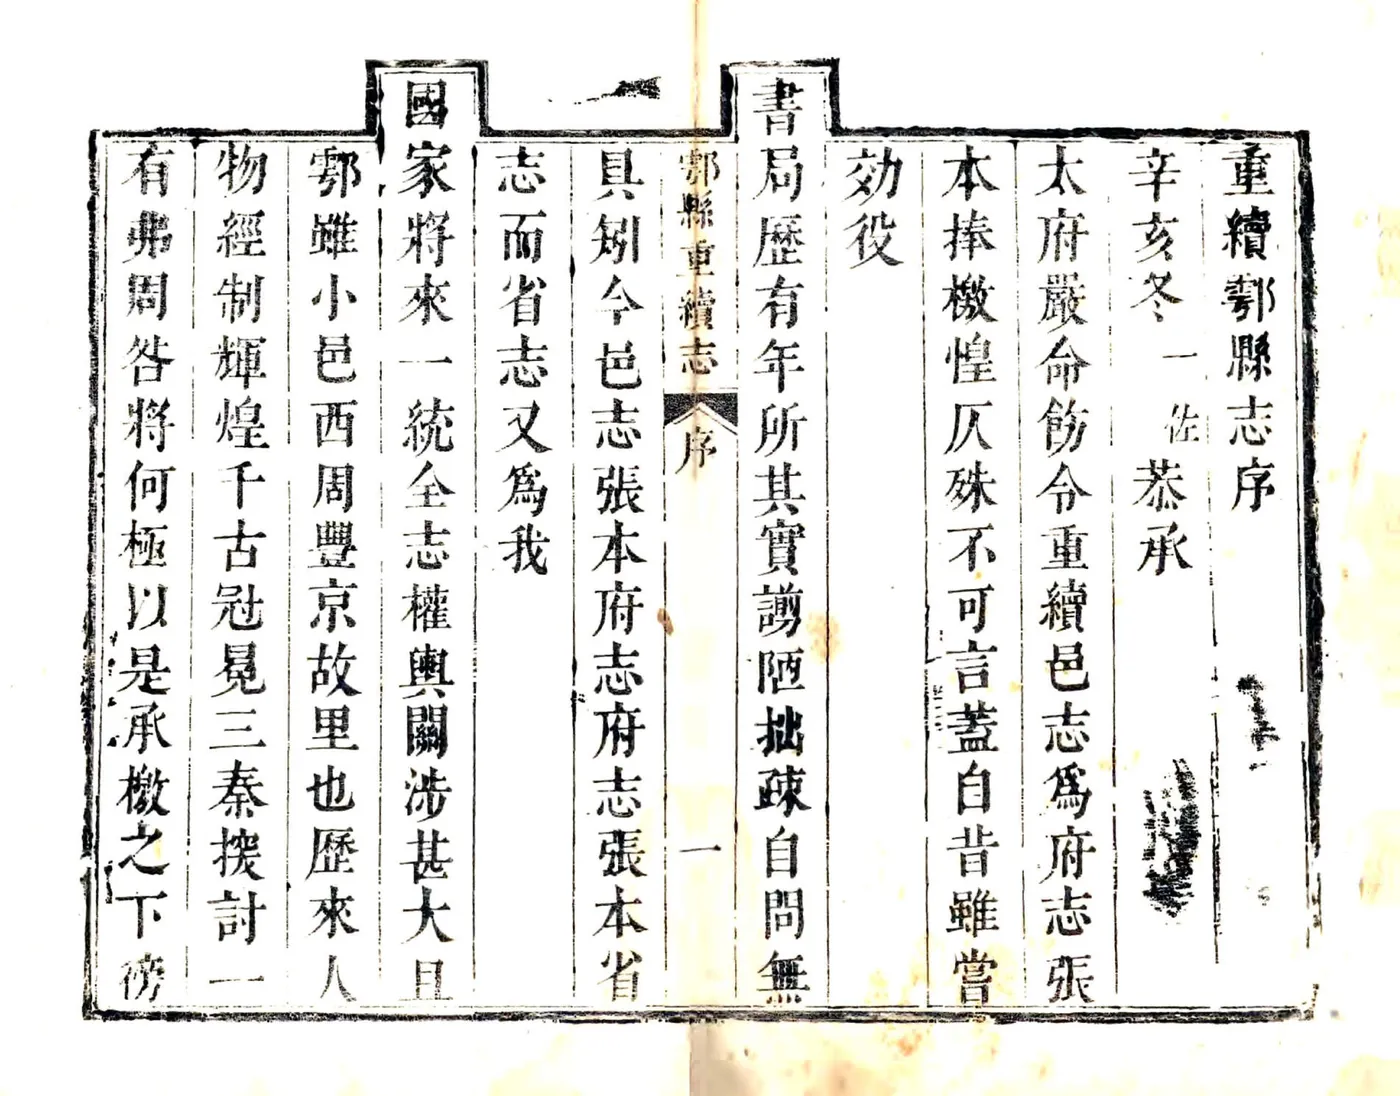 重續鄠縣志序
辛亥冬一佐恭承
太府嚴命飭令重續邑志爲府志張
本捧檄惶仄殊不可言蓋自昔雖嘗
効役
書局歷有年所其實謭陋拙疎自問無
鄠縣重續志 序 一
具矧今邑志張本府志府志張本省
志而省志又爲我
國家將來一統全志權輿關涉甚大且
鄠雖小邑西周豐京故里也歷來人
物經制輝煌千古冠冕三秦援討一
有弗周咎將何極以是承檄之下徬